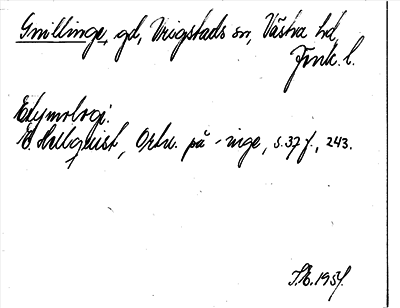 Gnillinge, gd, Vrigstads sn, Västra hd,
Jönk. l.
Etymologi:
E. Hellquist, Ortn. på -inge, s. 37 f., 243.
1954.